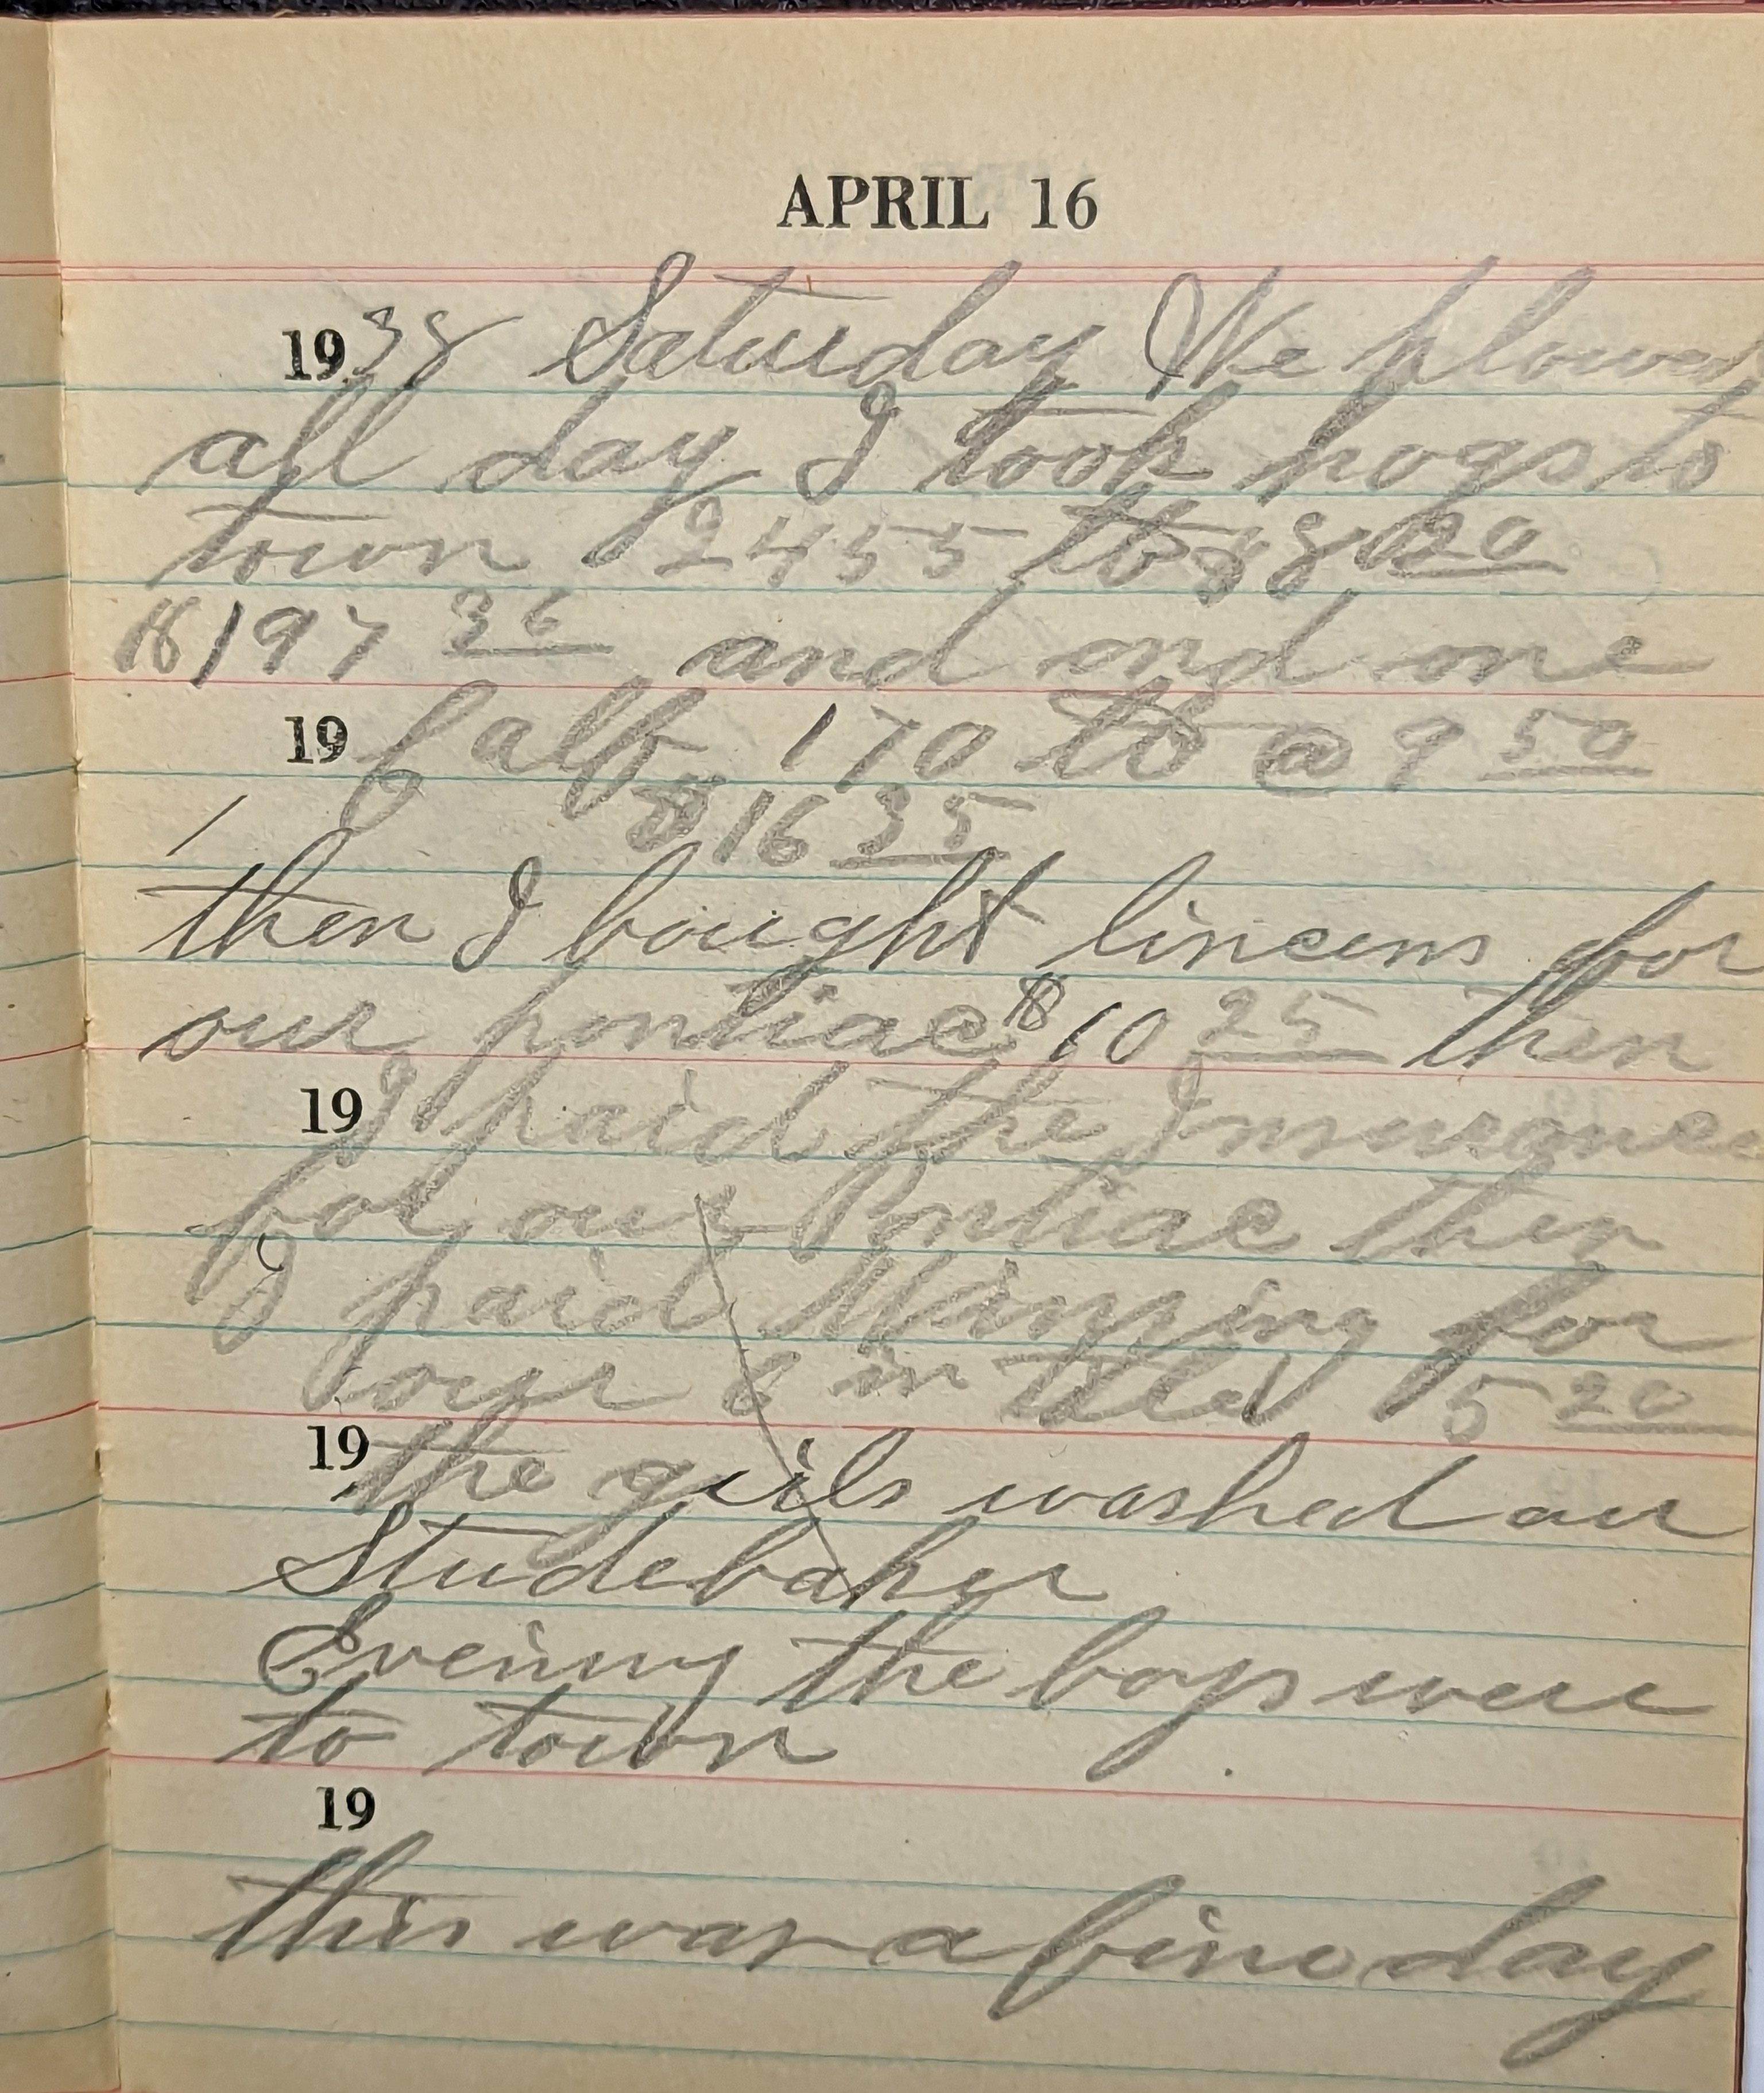 APRIL 16
1938 Saturday We plowed
all day I took hogs to
town 2455 lb $8 20
$197 36 and ond one
19 Calf 170 lb @ 9 50
$16 35
then I bought lincens for
our pontiac $10 25 then
19 I paid the Insurance
for our Pontiac then
I paid for
our 8 in 5 20
19 the girls washed our
Studebaker
Evening the boys were
to town
19
this was a fine day